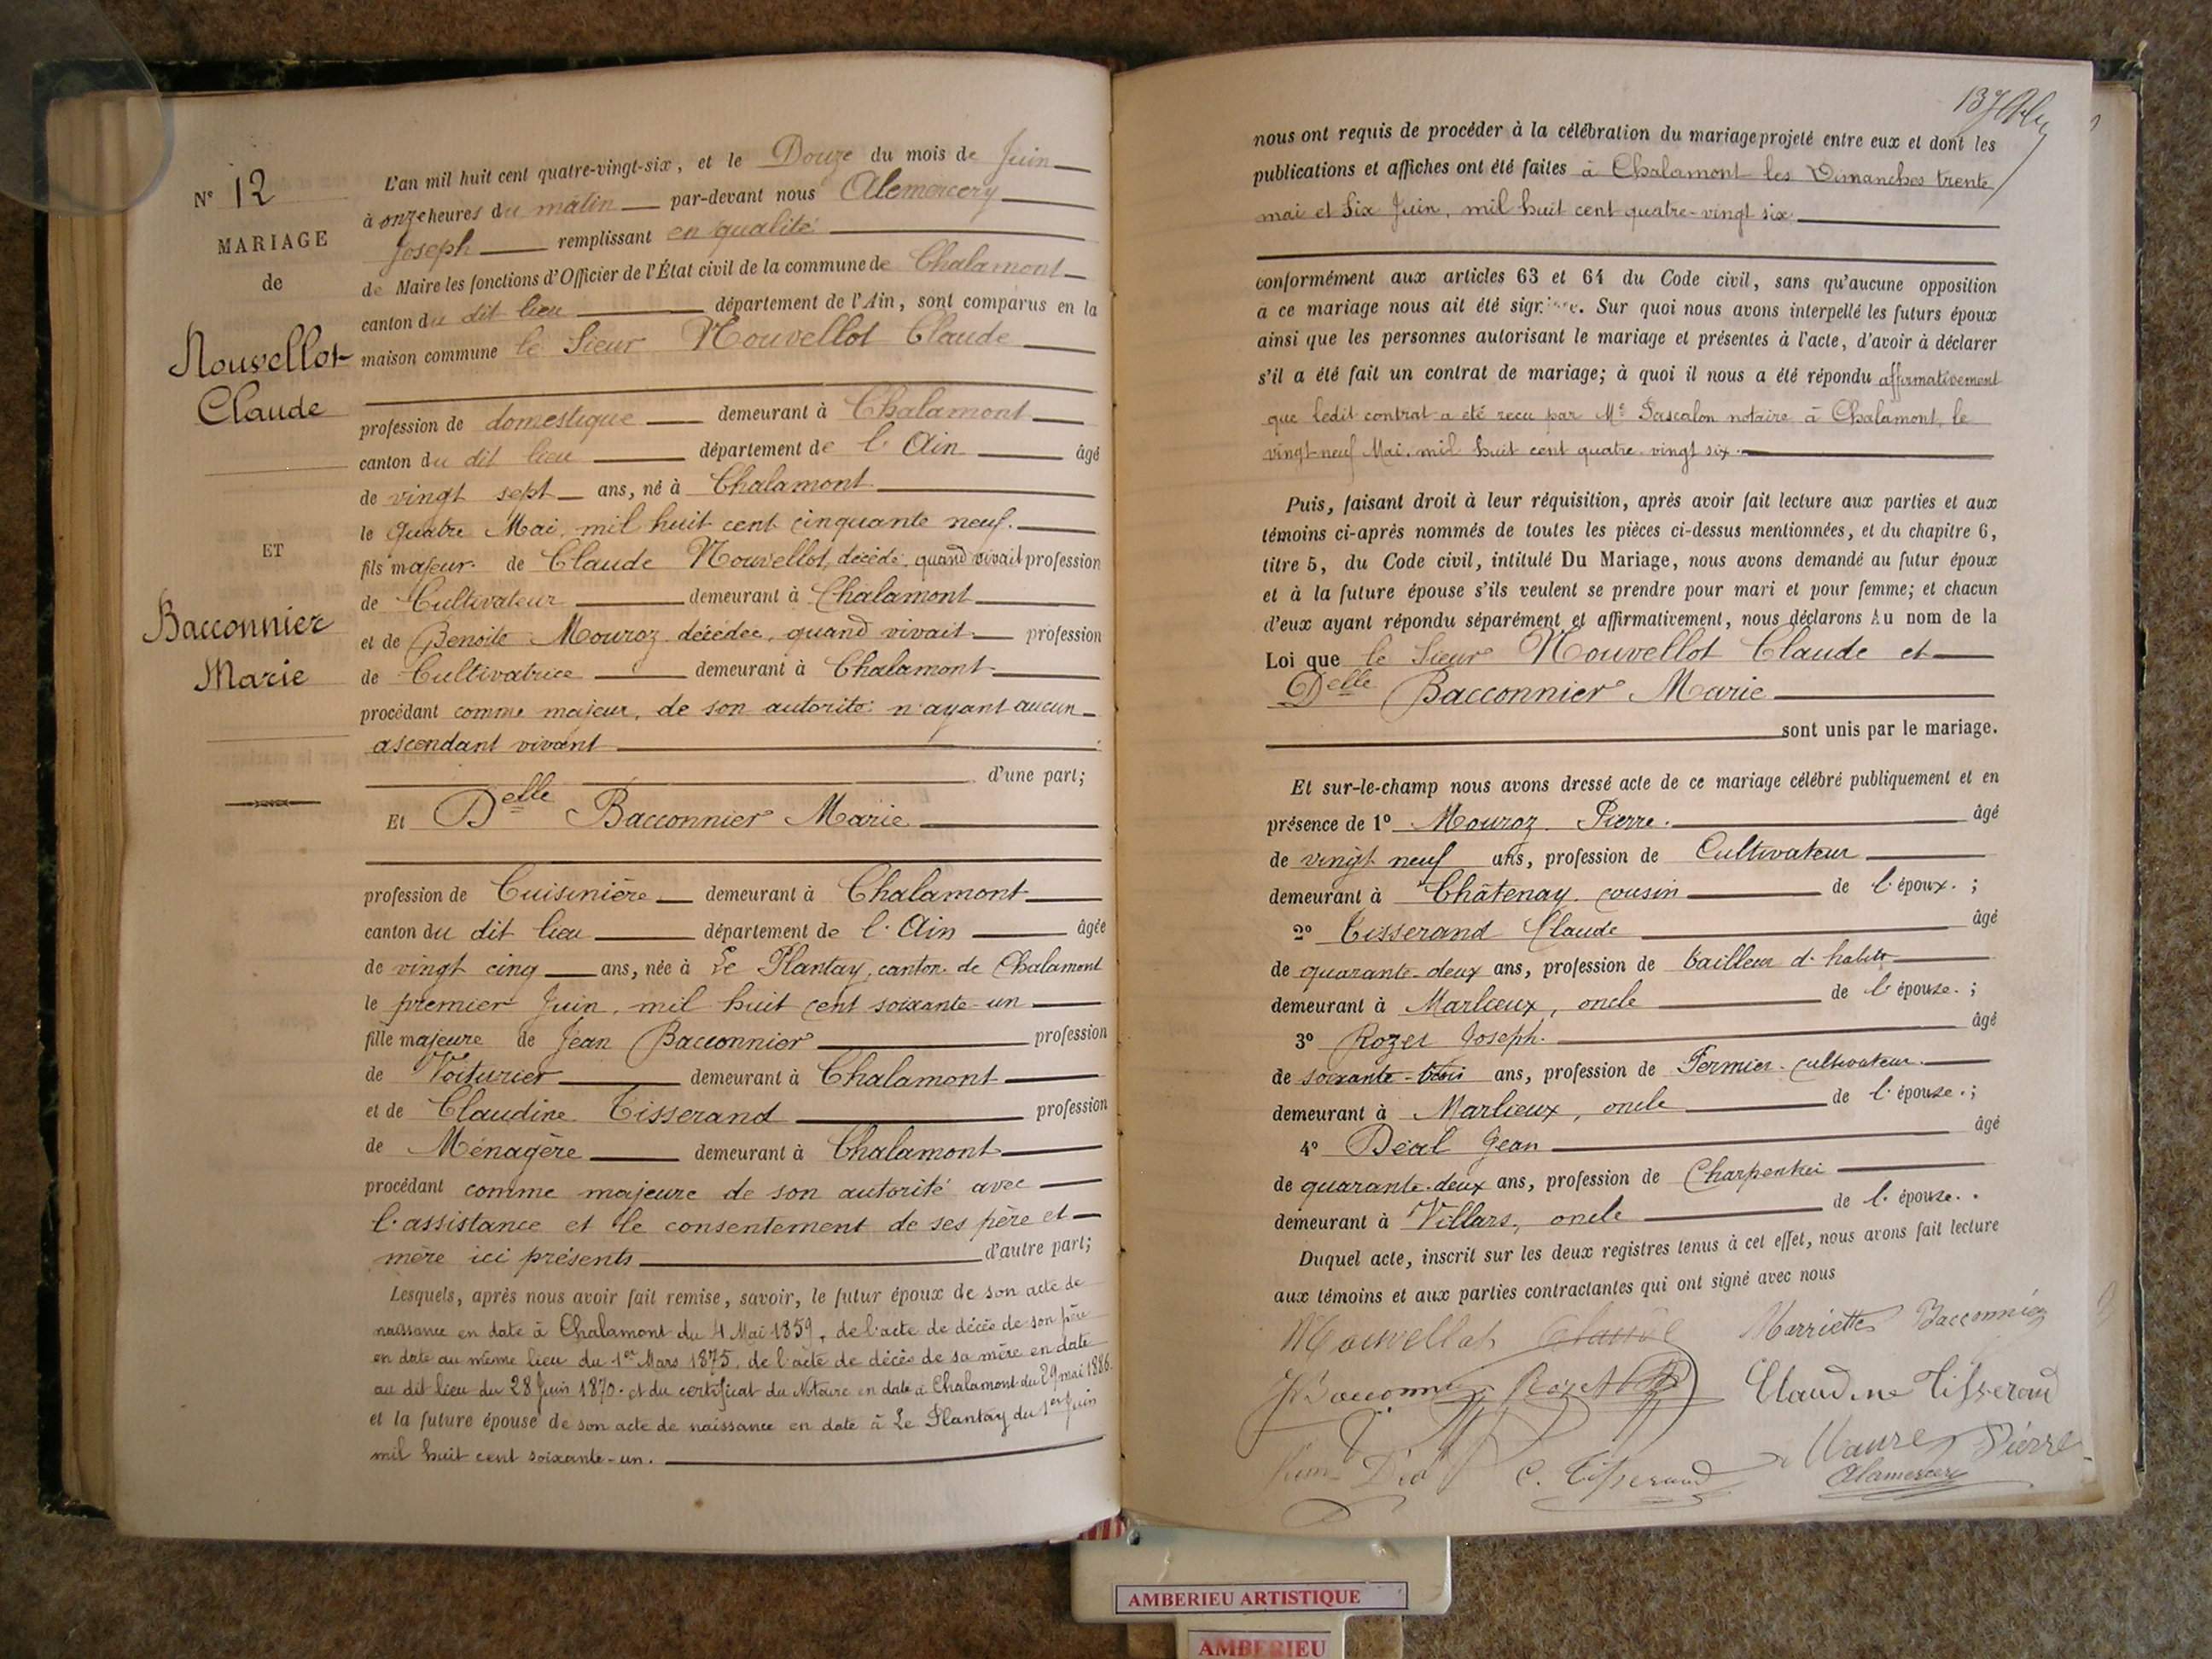 N° 12
MARIAGE
de
Nouvellot
Claude
ET
Bacconnier
Marie
L'an mil huit cent quatre-vingt-six, et le Douze du mois de Juin
à onze heures du matin par-devant nous Alemercery
Joseph remplissant en qualité
de Maire les fonctions d'Officier de l'État civil de la commune de Chalamont
canton du dit lieu département de l'Ain, sont comparus en la
maison commune le Sieur Nouvellot Claude
profession de domestique demeurant à Chalamont
canton du dit lieu département de l'Ain âgé
de vingt sept ans, né à Chalamont
le quatre Mai, mil huit cent cinquante neuf.
fils majeur de Claude Nouvellot, décédé, quand vivait profession
de Cultivateur demeurant à Chalamont
et de Benoite Mouroz décédée, quand vivait profession
de Cultivatrice demeurant à Chalamont
procédant comme majeur, de son autorité n'ayant aucun
ascendant vivant
d'une part;
Et Delle Bacconnier Marie
profession de Cuisinière demeurant à Chalamont
canton du dit lieu département de l'Ain âgée
de vingt cinq ans, née à Le Plantay, canton de Chalamont
le premier Juin, mil huit cent soixante-un
fille majeure de Jean Bacconnier profession
de Voiturier demeurant à Chalamont
et de Claudine Tisserand profession
de Ménagère demeurant à Chalamont
procédant comme majeure de son autorité avec
l'assistance et le consentement de ses père et
mère ici présents d'autre part;
Lesquels, après nous avoir fait remise, savoir, le futur époux de son acte de
naissance en date à Chalamont du 4 Mai 1859, de l'acte de décès de son père
en date au même lieu du 1er Mars 1875, de l'acte de décès de sa mère en date
au dit lieu du 28 Juin 1870. et du certificat du Notaire en date à Chalamont du 29 mai 1886.
et la future épouse de son acte de naissance en date à Le Plantay du 1er Juin
mil huit cent soixante-un.
137
nous ont requis de procéder à la célébration du mariage projeté entre eux et dont les
publications et affiches ont été faites à Chalamont les Dimanches trente
mai et Six Juin, mil huit cent quatre-vingt six.
conformément aux articles 63 et 64 du Code civil, sans qu'aucune opposition
à ce mariage nous ait été . Sur quoi nous avons interpellé les futurs époux
ainsi que les personnes autorisant le mariage et présentes à l'acte, d'avoir à déclarer
s'il a été fait un contrat de mariage; à quoi il nous a été répondu affirmativement
que ledit contrat a été reçu par Me Pascalon notaire à Chalamont, le
vingt-neuf Mai, mil huit cent quatre-vingt six.
Puis, faisant droit à leur réquisition, après avoir fait lecture aux parties et aux
témoins ci-après nommés de toutes les pièces ci-dessus mentionnées, et du chapitre 6,
titre 5, du Code civil, intitulé Du Mariage, nous avons demandé au futur époux
et à la future épouse s'ils veulent se prendre pour mari et pour femme; et chacun
d'eux ayant répondu séparément et affirmativement, nous déclarons Au nom de la
Loi que le Sieur Nouvellot Claude et
Delle Bacconnier Marie
sont unis par le mariage.
Et sur-le-champ nous avons dressé acte de ce mariage célébré publiquement et en
présence de 1° Mouroz Pierre. âgé
de vingt neuf ans, profession de Cultivateur
demeurant à Châtenay, cousin de l'époux. ;
2° Tisserand Claude âgé
de quarante-deux ans, profession de tailleur d'habits
demeurant à Marlieux, oncle de l'épouse. ;
3° Rozet Joseph. âgé
de soixante-trois ans, profession de Fermier-cultivateur.
demeurant à Marlieux, oncle de l'épouse. ;
4° Déal Jean âgé
de quarante-deux ans, profession de Charpentier
demeurant à Villars, oncle de l'épouse. .
Duquel acte, inscrit sur les deux registres tenus à cet effet, nous avons fait lecture
aux témoins et aux parties contractantes qui ont signé avec nous
Nouvellot Claude Marriette Bacconnier
Rozet Claudine Tisserand
C. Tisserand Pierre
Alemercery
AMBERIEU ARTISTIQUE
AMBERIEU